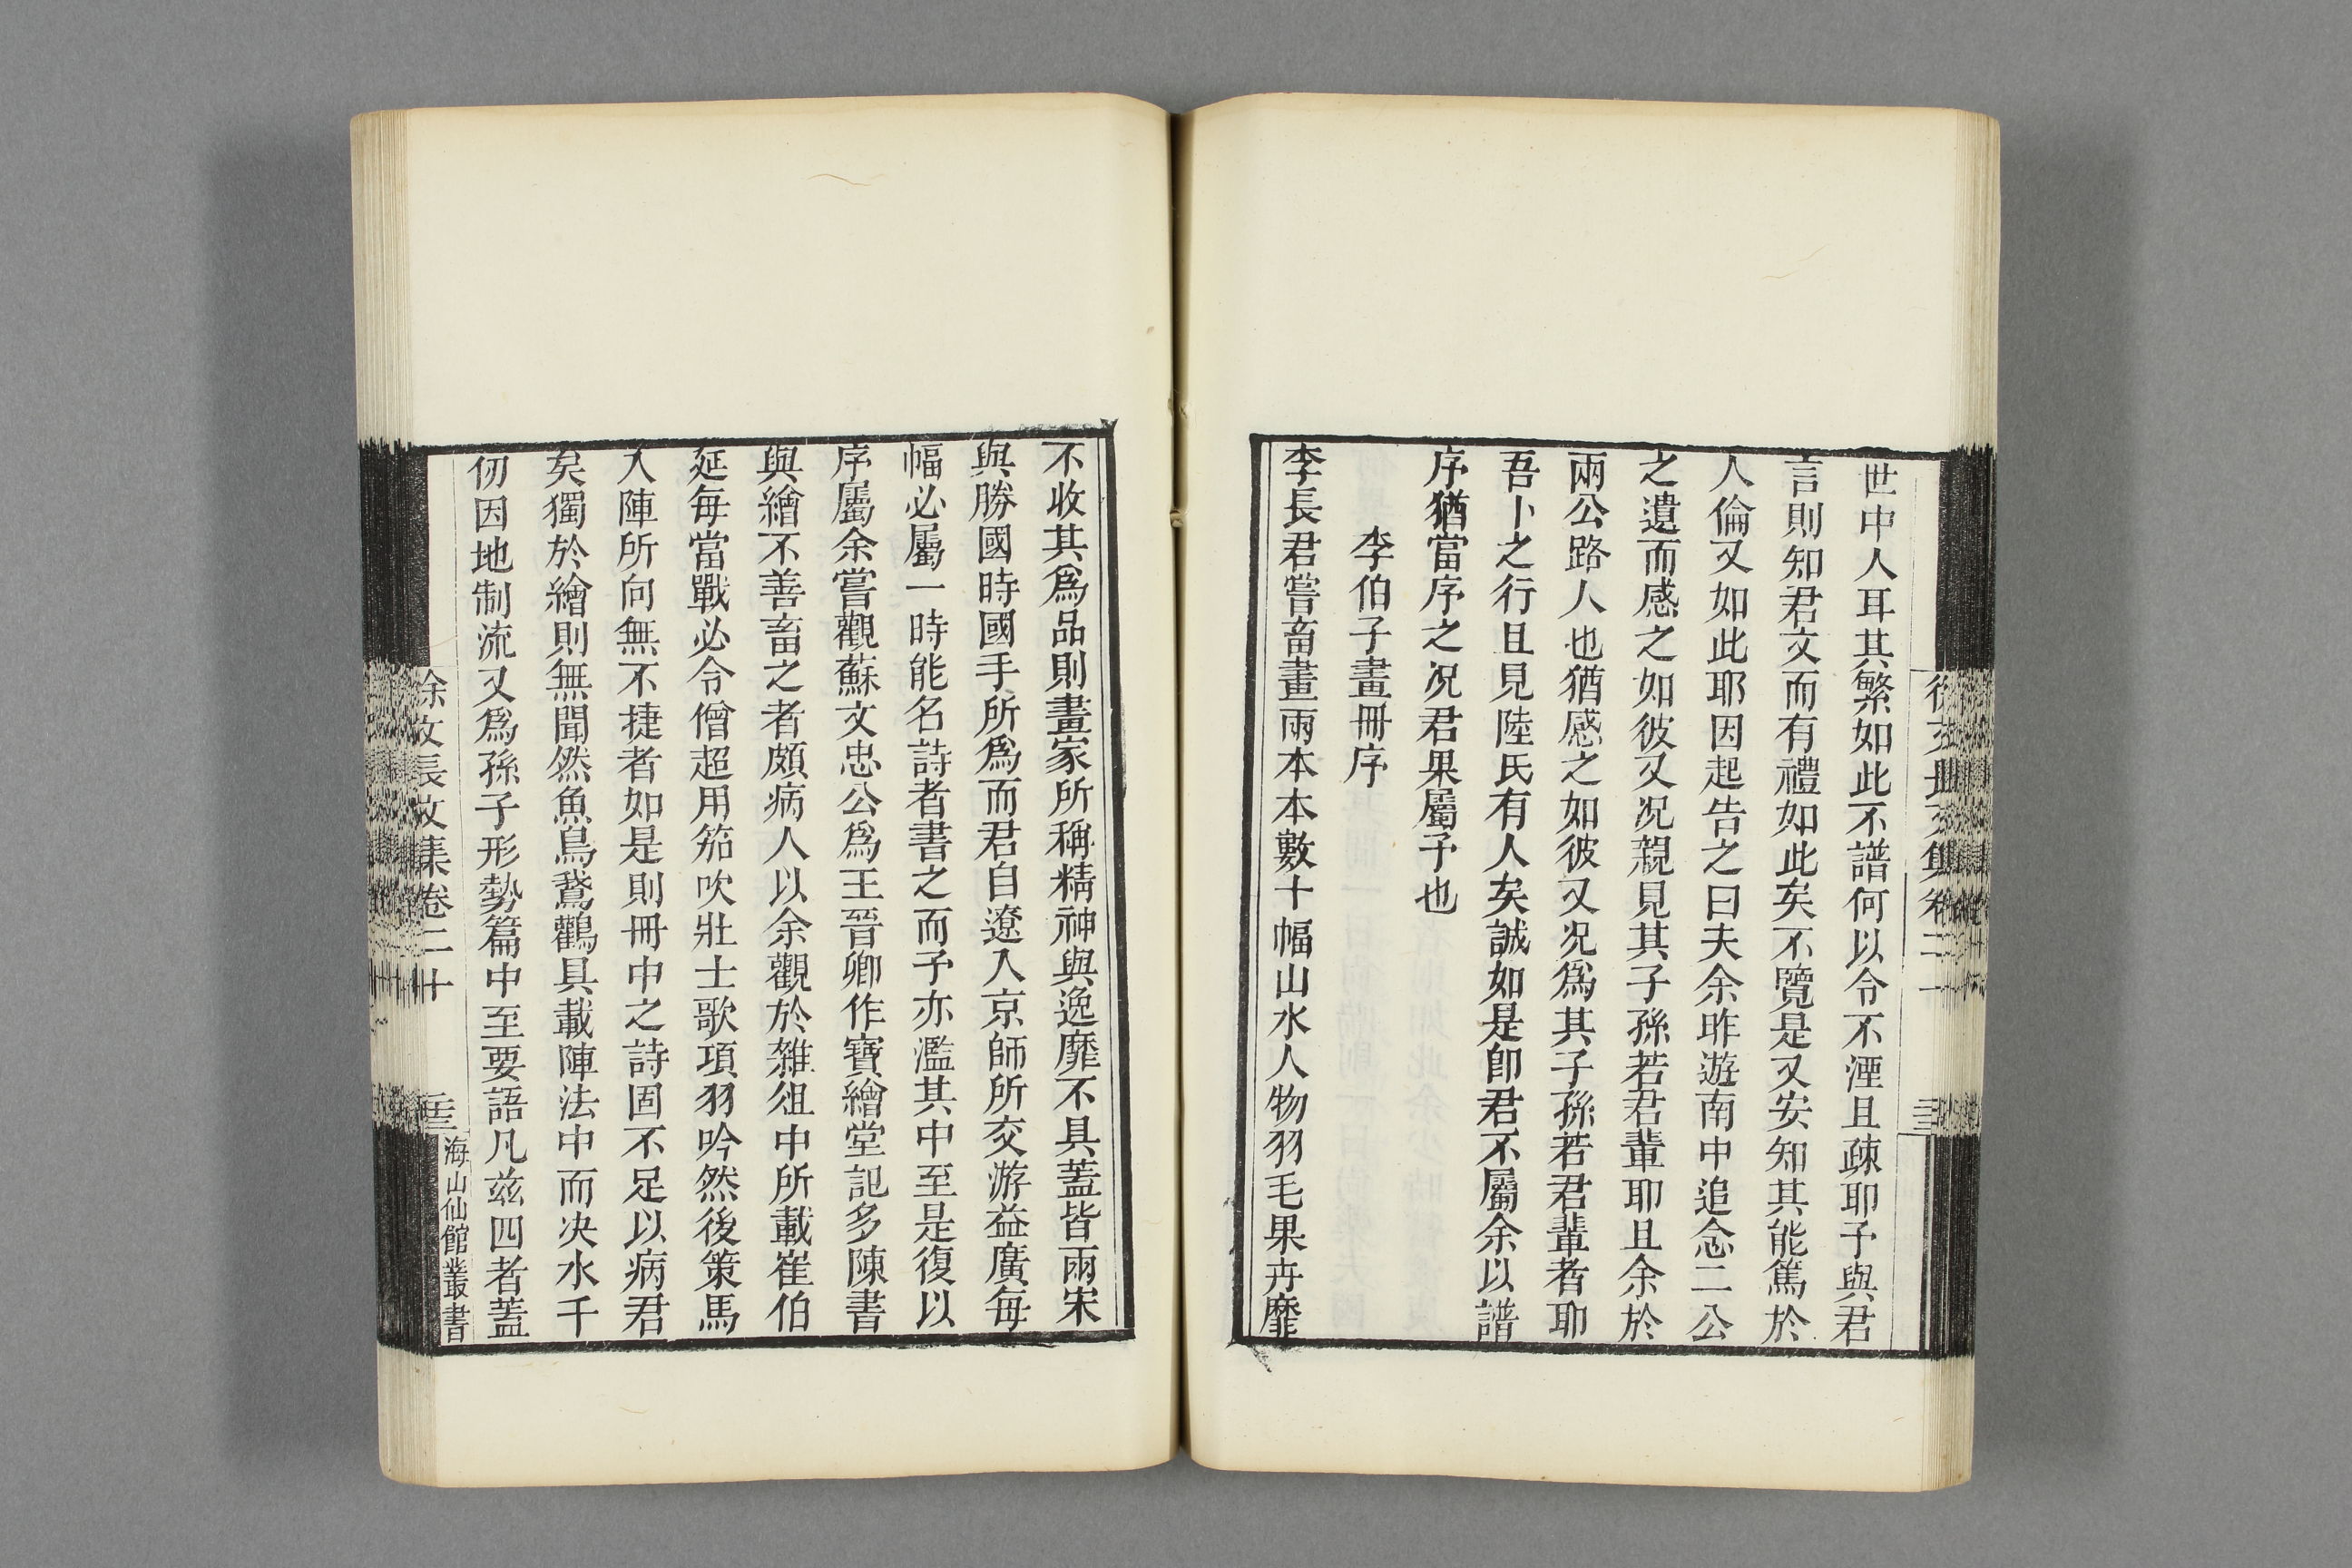 世中人耳其繁如此不譜何以令不湮且疎耶子與君
言則知君文而有禮如此矣不覽是又安知其能篤於
人倫又如此耶因起告之曰夫余昨遊南中追念二公
之遺而感之如彼又況親見其子孫若君輩耶且余於
兩公路人也猶感之如彼又況為其子孫若君輩者耶
吾卜之行且見陸氏有人矣誠如是卽君不屬余以譜
序猶當序之況君果屬予也
李伯子畫冊序
李長君嘗畜畫兩本本數十幅山水人物羽毛果卉靡
不收其爲品則畫家所稱精神與逸靡不具蓋皆兩宋
與勝國時國手所爲而君自遼入京師所交游益廣每
幅必屬一時能名詩者書之而予亦濫其中至是復以
序屬余嘗觀蘇文忠公爲王晉卿作寶繪堂記多陳書
與繪不善畜之者頗病人以余觀於雜俎中所載崔伯
延每當戰必令僧超用笳吹壯士歌項羽吟然後策馬
入陣所向無不捷者如是則冊中之詩固不足以病君
矣獨於繪則無聞然魚鳥鵞鸛具載陣法中而决水千
仞因地制流又爲孫子形勢篇中至要語凡玆四者蓋
徐文長文集卷二十
三
海山仙館叢書